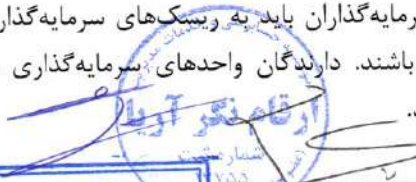 سرمایه‌گذاران باید به ریسک‌های سرمایه‌گذار
باشند. دارندگان واحدهای سرمایه‌گذاری
ارقام نگر آریا
شماره ثبت